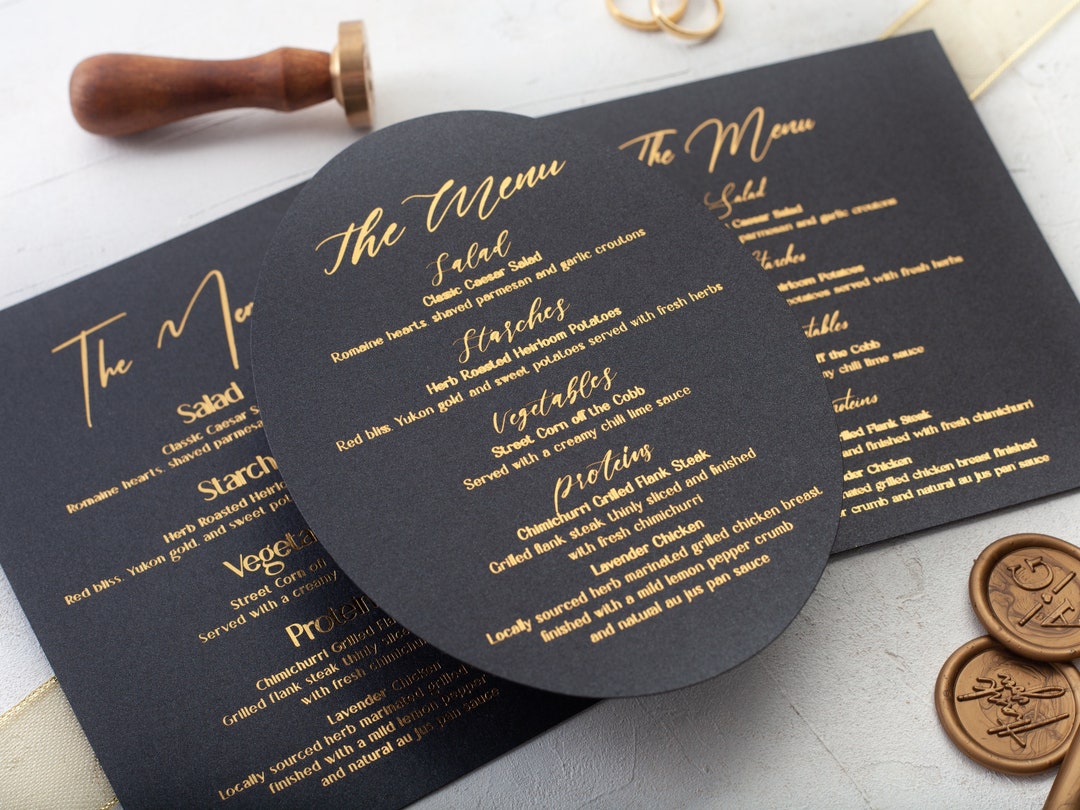 The Men
Salad
Classic Caesar S
Romaine hearts, shaved parmesa
Starch
Herb Roasted Heirlo
Red bliss, Yukon gold, and sweet pot
Vegeta
Street Corn off
Served with a creamy
Protein
Chimichurri Grilled Fla
Grilled flank steak thinly slic
with fresh chimichurri
Lavender Chicken
Locally sourced herb marinated grilled
finished with a mild lemon pepper
and natural au jus pan sauce
The Menu
Salad
Classic Caesar Salad
Romaine hearts, shaved parmesan and garlic croutons
Starches
Herb Roasted Heirloom Potatoes
Red bliss, Yukon gold, and sweet potatoes served with fresh herbs
Vegetables
Street Corn off the Cobb
Served with a creamy chili lime sauce
Proteins
Chimichurri Grilled Flank Steak
Grilled flank steak thinly sliced and finished
with fresh chimichurri
Lavender Chicken
Locally sourced herb marinated grilled chicken breast
finished with a mild lemon pepper crumb
and natural au jus pan sauce
The Menu
Salad
Caesar Salad
parmesan and garlic croutons
tarches
eirloom Potatoes
potatoes served with fresh herbs
tables
off the Cobb
y chili lime sauce
roteins
rilled Flank Steak
and finished with fresh chimichurri
der Chicken
marinated grilled chicken breast finished
er crumb and natural au jus pan sauce
G A